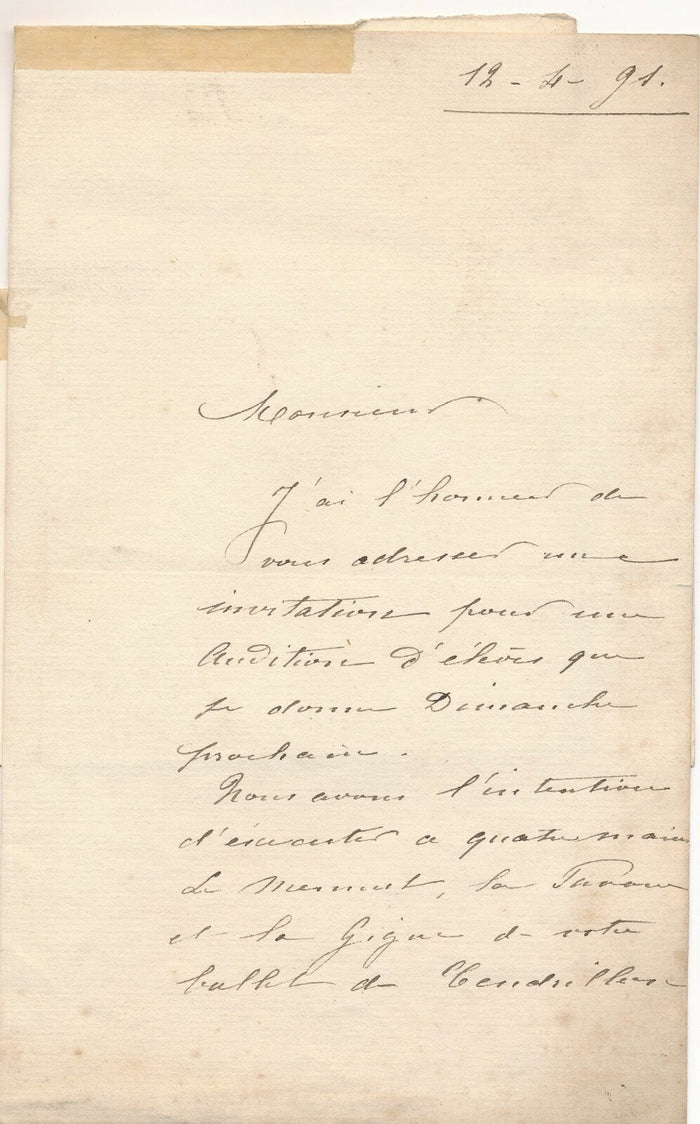 12 - 4 - 91.
Monsieur
J'ai l'honneur de
vous adresser une
invitation pour une
Audition d'élèves que
je donne Dimanche
prochain.
Nous avons l'intention
d'éxecuter a quatre mains
Le Menuet, la Pavane
et la Gigue de votre
ballet de Cendrillon